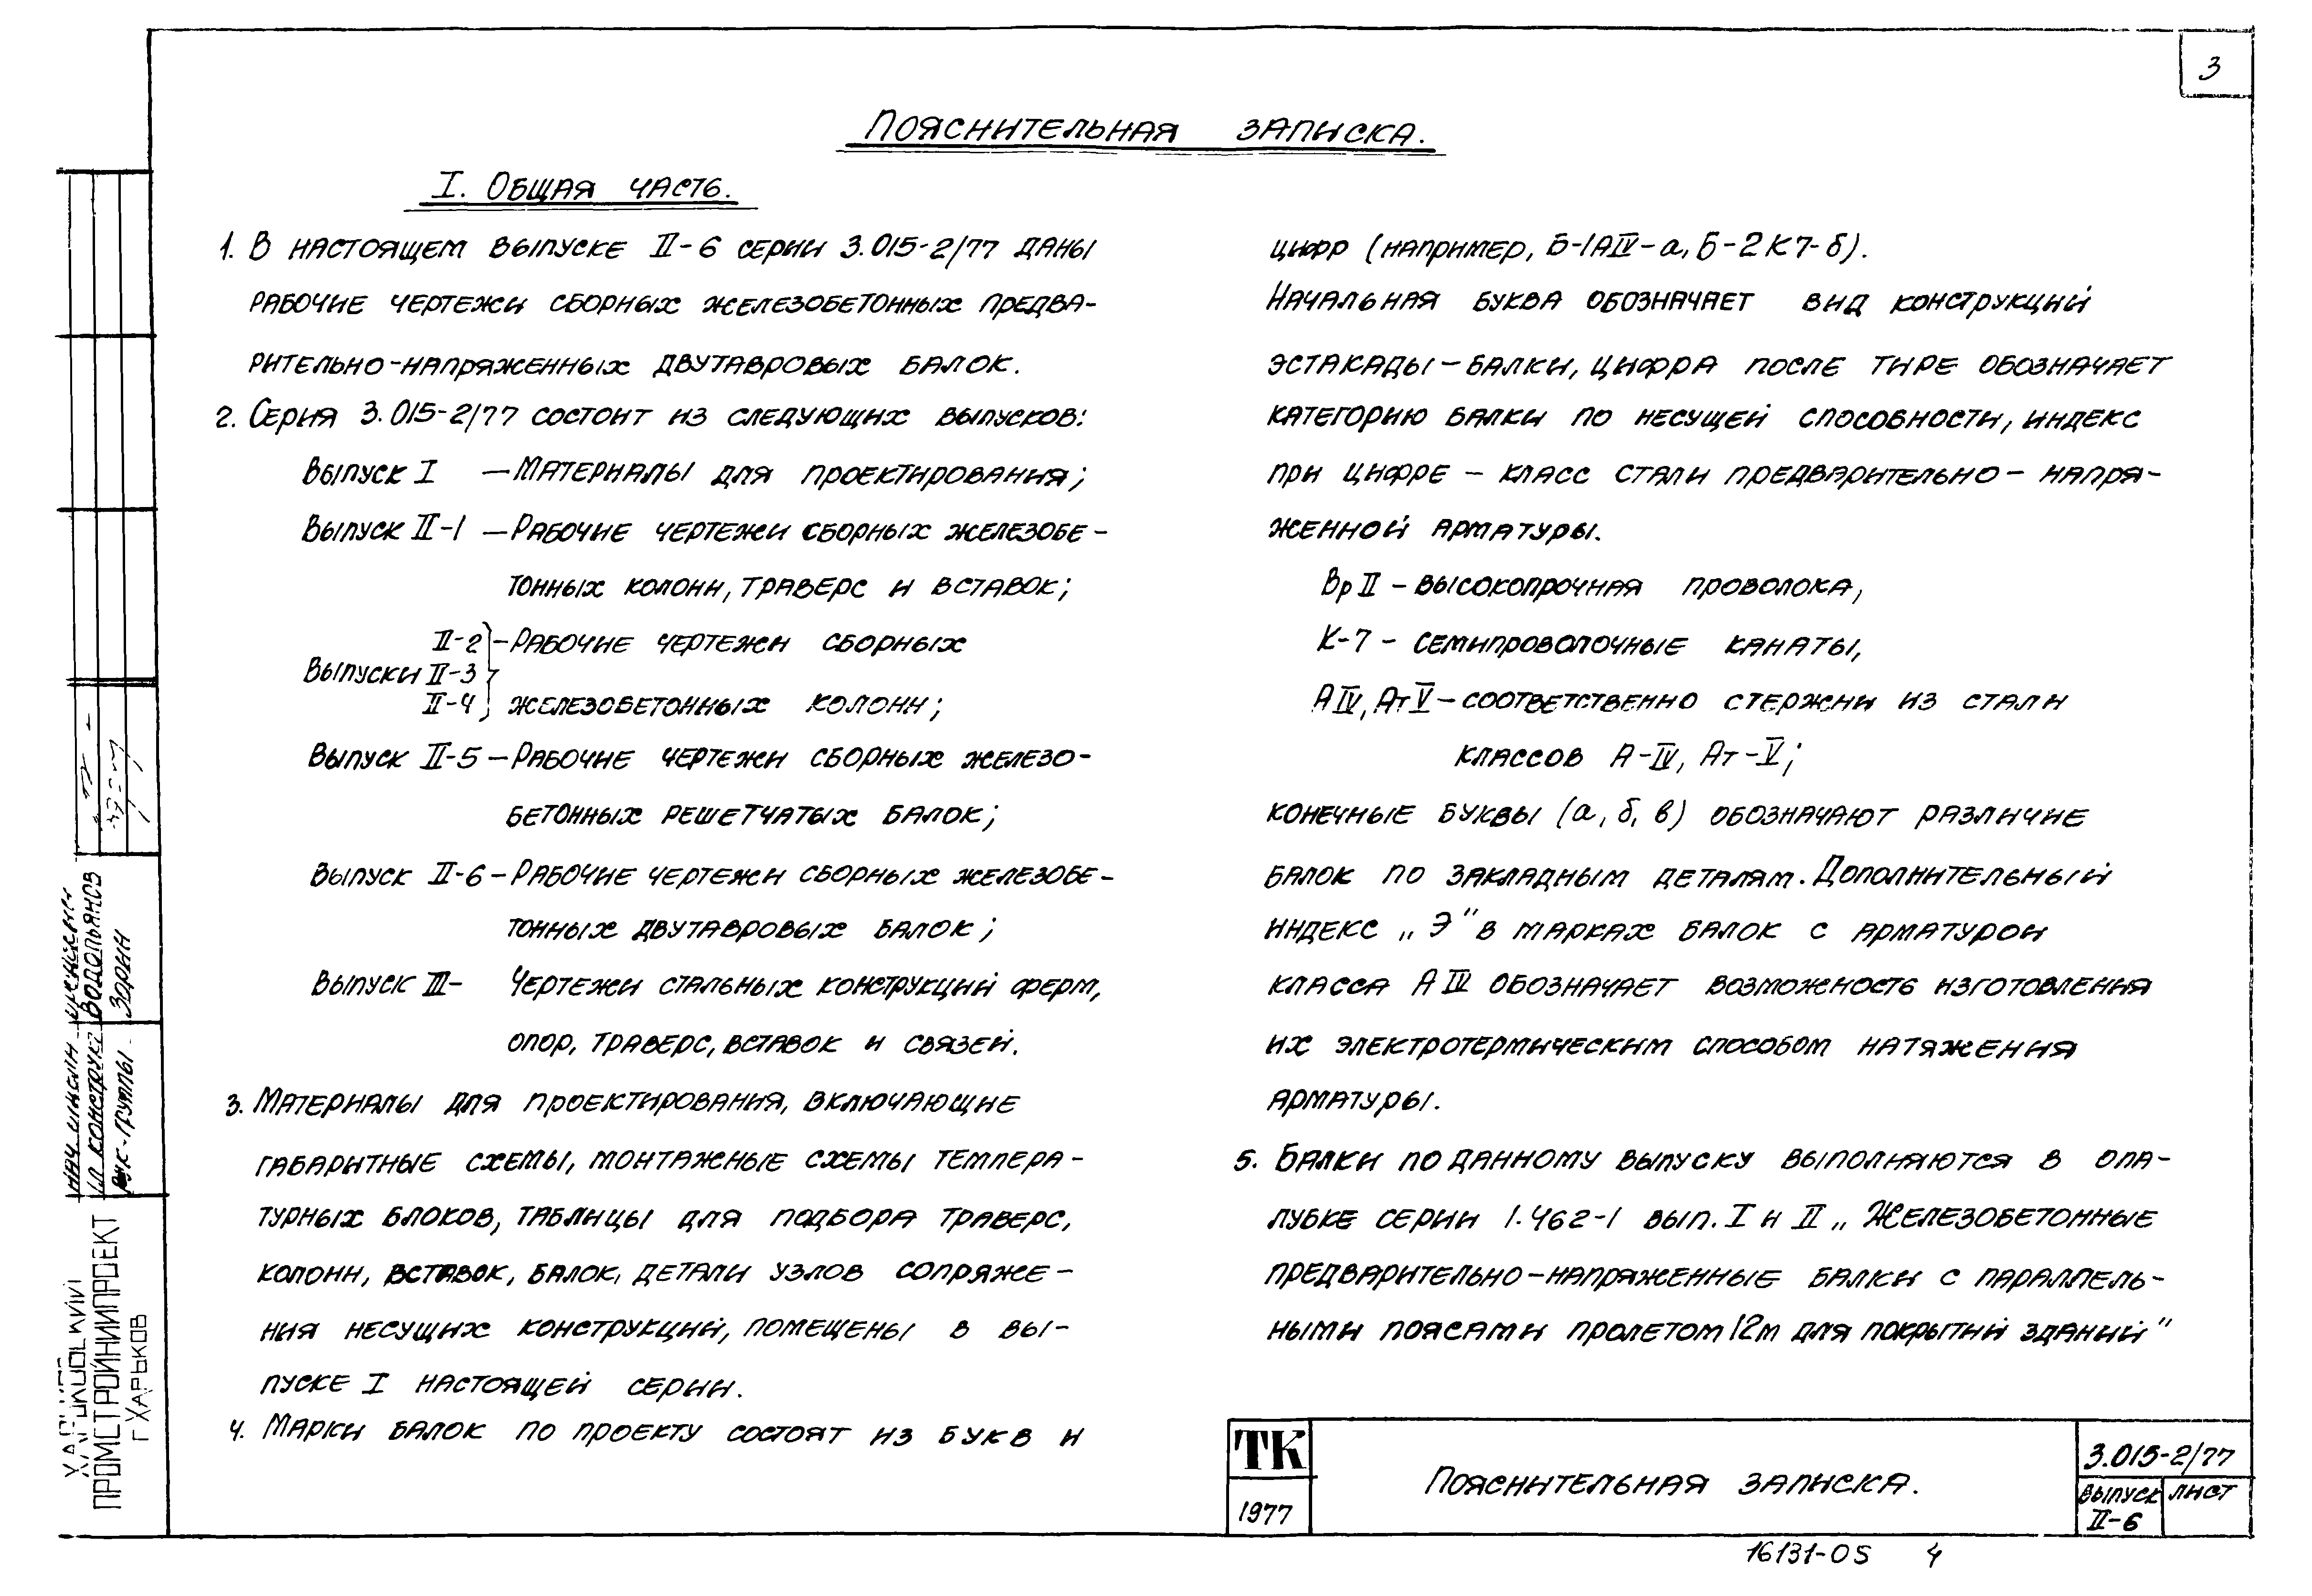 3
Пояснительная записка.
I. Общая часть.
1. В настоящем выпуске II-6 серии 3.015-2/77 даны
рабочие чертежи сборных железобетонных предва-
рительно-напряженных двутавровых балок.
2. Серия 3.015-2/77 состоит из следующих выпусков:
Выпуск I — Материалы для проектирования;
Выпуск II-1 — Рабочие чертежи сборных железобе-
тонных колонн, траверс и вставок;
II-2 — Рабочие чертежи сборных
Выпуски II-3
II-4 железобетонных колонн;
Выпуск II-5 — Рабочие чертежи сборных железо-
бетонных решетчатых балок;
Выпуск II-6 — Рабочие чертежи сборных железобе-
тонных двутавровых балок;
Выпуск III - Чертежи стальных конструкций ферм,
опор, траверс, вставок и связей.
3. Материалы для проектирования, включающие
габаритные схемы, монтажные схемы темпера-
турных блоков, таблицы для подбора траверс,
колонн, вставок, балок, детали узлов сопряже-
ния несущих конструкций, помещены в вы-
пуске I настоящей серии.
4. Марки балок по проекту состоят из букв и
цифр (например, Б-1АIV-а, Б-2К7-б).
Начальная буква обозначает вид конструкций
эстакады — балки, цифра после тире обозначает
категорию балки по несущей способности, индекс
при цифре — класс стали предварительно-напря-
женной арматуры.
Вр II — высокопрочная проволока,
К-7 — семипроволочные канаты,
А IV, Ат V — соответственно стержни из стали
классов А-IV, Ат-V;
конечные буквы (а, б, в) обозначают различие
балок по закладным деталям. Дополнительный
индекс „Э" в марках балок с арматурой
класса А IV обозначает возможность изготовления
их электротермическим способом натяжения
арматуры.
5. Балки по данному выпуску выполняются в опа-
лубке серии 1.462-1 вып. I и II „Железобетонные
предварительно-напряженные балки с параллель-
ными поясами пролетом 12м для покрытий зданий"
ТК
1977
Пояснительная записка.
3.015-2/77
Выпуск
II-6
лист
16131-05 4
Водопьянов
Гл. конструк.
Зорин
Рук-группы
Харьковский
ПРОМСТРОЙНИИПРОЕКТ
г Харьков